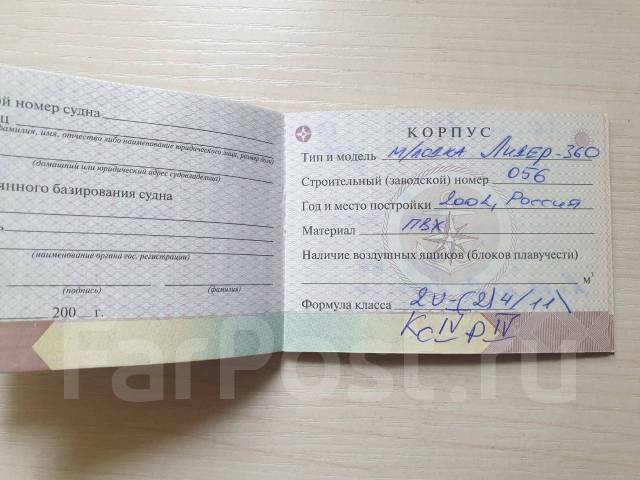 ой номер судна
ец
фамилия, имя, отчество либо наименование юридического лица, размер доли)
(домашний или юридический адрес судовладельца)
янного базирования судна
(наименование органа гос. регистрации)
(подпись) (фамилия)
200 г.
КОРПУС
Тип и модель м/лодка Лидер-360
Строительный (заводской) номер 056
Год и место постройки 2002, Россия
Материал ПВХ
Наличие воздушных ящиков (блоков плавучести)
м³
Формула класса (2) 4/11\
КсIV РIV
FarPost.ru